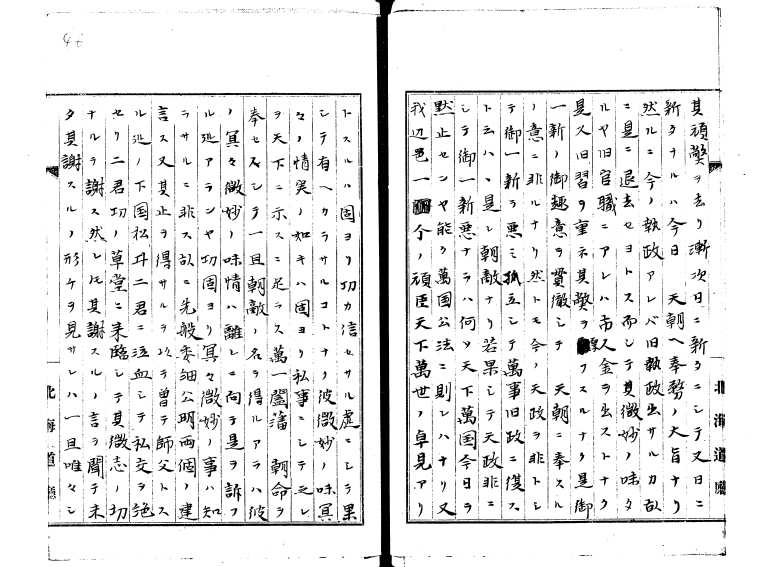 其頑弊ヲ去リ漸次日ニ新タニシテ又日ニ
新タナルハ今日 天朝ヘ奉務ノ大旨ナリ
然ルニ今ノ執政アレバ旧執政出サルカ故
ニ是ニ退去セヨトス而シテ其微妙ノ味タ
ルヤ旧官職ニアレハ市人金ヲ出ストナク
是又旧習ヲ重子其弊ヲ フスルナク是御
一新ノ御趣意ヲ貫徹シテ 天朝ニ奉スル
ノ意ニ非ルナリ然トモ今ノ天政ヲ非トシ
テ御一新ヲ悪ミ孤立シテ萬事旧政ニ復ス
ト云ハヽ是レ朝敵ナリ若果シテ天政非ニ
シテ御一新悪ナラハ何ソ天下萬国今日ヲ
黙止センヤ能ク萬国公法ニ則レハナリ又
我辺邑一 个ノ頑臣天下萬世ノ卓見アリ
北海道廳
トスルハ固ヨリ功カ信セサル虚ニシテ果
シテ有ヘカラサルコトナリ彼微妙ノ味冥
々ノ情実ノ如キハ固ヨリ私事ニシテ之レ
ヲ天下ニ示スニ足ラス萬一闔藩 朝命ヲ
奉セスシテ一旦朝敵ノ名ヲ得ルアラハ彼
ノ冥々微妙ノ味情ハ離レニ向テ是ヲ訴フ
ル処アランヤ功固ヨリ冥々微妙ノ事ハ知
ラサルニ非ス故ニ先般委細公明両個ノ建
言ス又其止ヲ得サルヲ以テ曽テ師父トス
ル処ノ下国松井二君ニ泣血シテ私交ヲ絶
セリ二君功ノ草堂ニ来臨シテ其微志ノ切
ナルヲ謝ス然レトモ其謝スルノ言ヲ聞テ未
タ其謝スルノ形ケヲ見サレハ一旦唯々シ
北海道廳